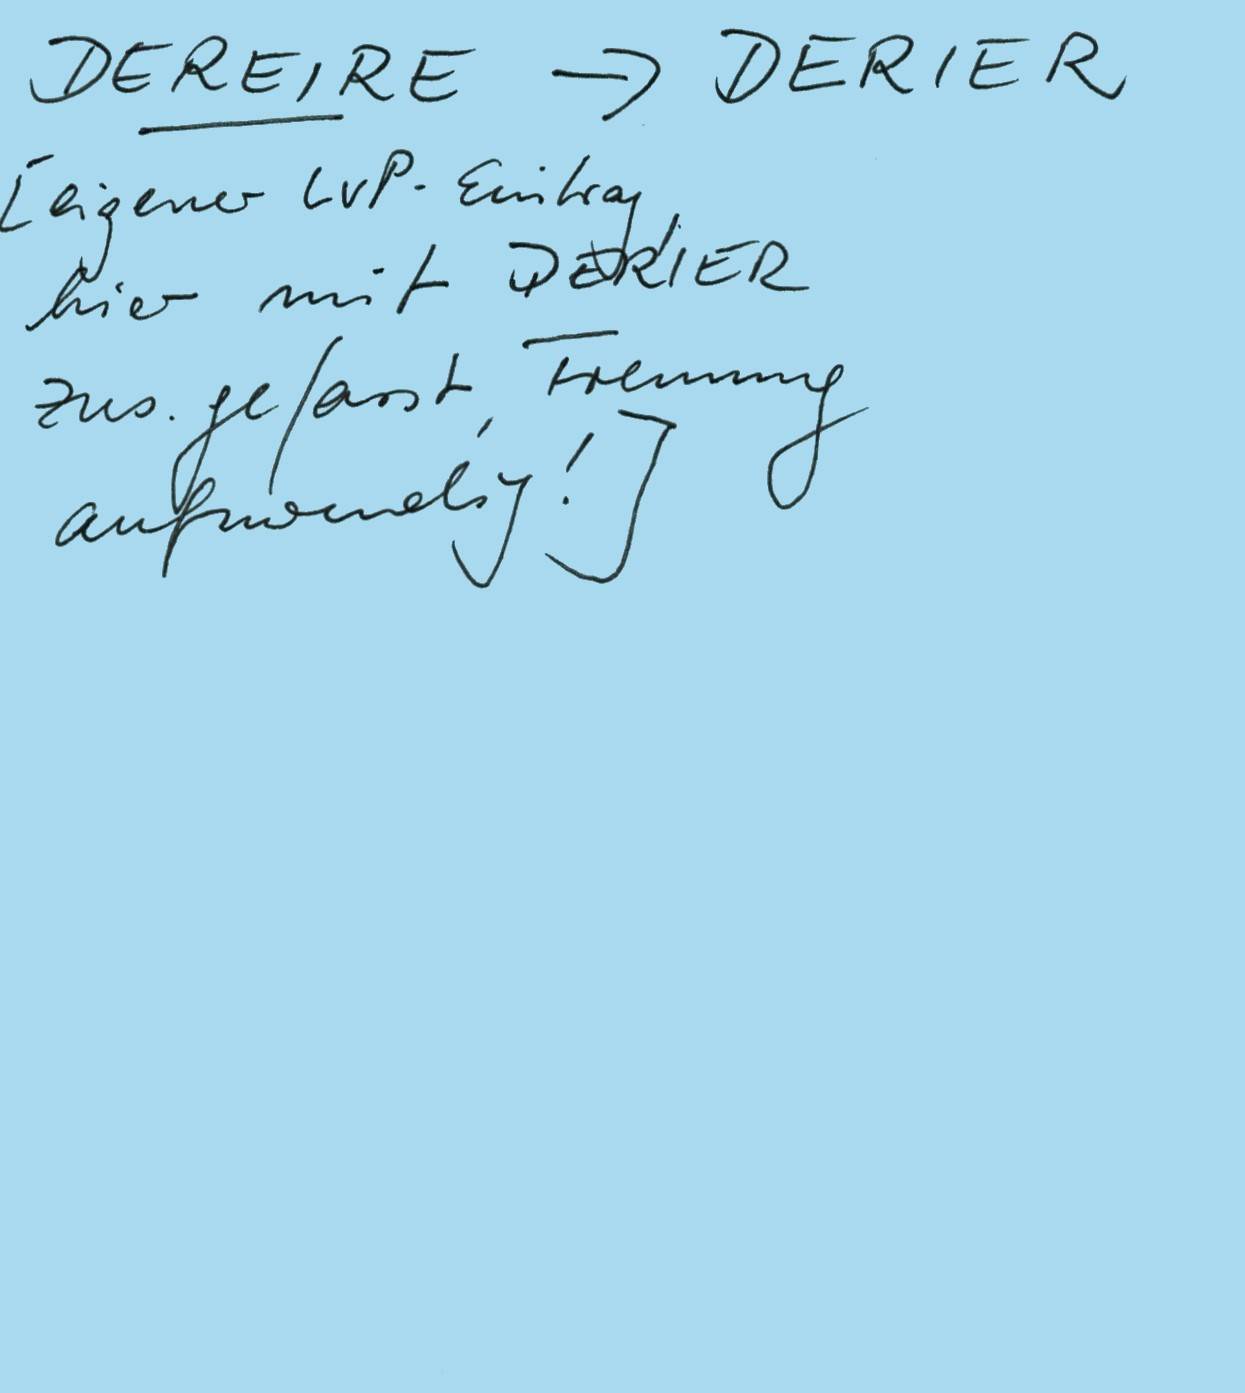 DEREIRE → DERIER
[eigener LvP-Eintrag,
hier mit DERIER
zus.gefasst, Trennung
aufwendig!]